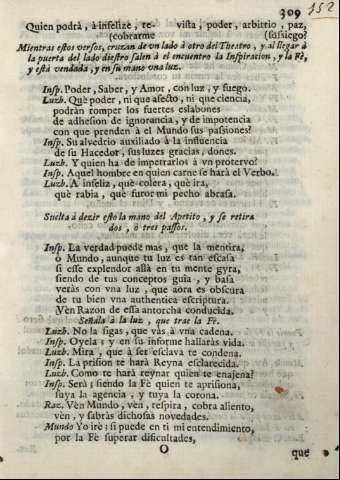 309
152
Quien podrà, à infelize, re- vista, poder, arbitrio, paz,
(cobrarme (sussiego?
Mientras estos versos, cruzan de vn lado à otro del Theatro, y al llegar à
la puerta del lado diestro salen à el encuentro la Inspiracion, y la Fè,
y està vendada, y en su mano vna luz.
Insp. Poder, Saber, y Amor, con luz, y fuego.
Luzb. Què poder, ni que afecto, ni que ciencia,
podràn romper los fuertes eslabones
de adhesion de ignorancia, y de impotencia
con que prenden à el Mundo sus passiones?
Insp. Su alvedrio auxiliado à la influencia
de su Hacedor, sus luzes gracias, dones.
Luzb. Y quien ha de impetrarlos à vn protervo?
Insp. Aquel hombre en quien carne se harà el Verbo.
Luzb. A infeliz, què colera, què ira,
què rabia, què furor mi pecho abrasa.
Suelta à dezir esto la mano del Apetito, y se retira
dos, ò tres passos.
Insp. La verdad puede mas, que la mentira,
ò Mundo, aunque tu luz es tan escasa
si esse explendor allà en tu mente gyra,
siendo de tus conceptos guia, y basa
veràs con vna luz, que aora es obscura
de tu bien vna authentica escriptura.
Vèn Razon de essa antorcha conducida.
Señala à la luz, que trae la Fè.
Luzb. No la sigas, que vàs à vna cadena.
Insp. Oyela; y en su informe hallaràs vida.
Luzb. Mira, que à ser esclava te condena.
Insp. La prision te harà Reyna esclarecida.
Luzb. Como te harà reynar quien te enajena?
Insp. Serà; siendo la Fè quien te aprisiona,
suya la agencia, y tuya la corona.
Raz. Vèn Mundo, vèn, respira, cobra aliento,
vèn, y sabràs dichosas novedades.
Mundo Yo irè; si puede en ti mi entendimiento,
por la Fè superar dificultades,
O que